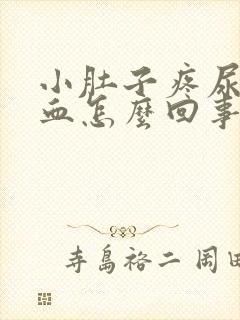 小肚子疼尿
血怎麼回事
寺島裕二 岡田